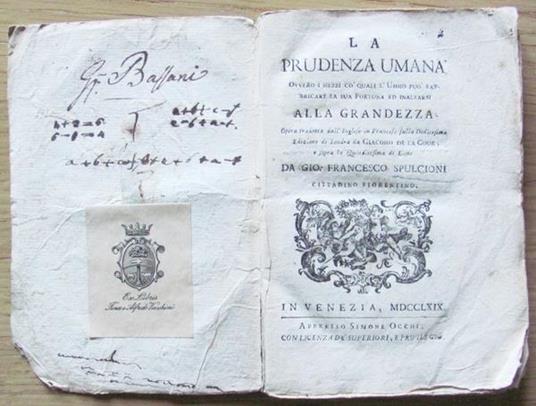 G. Bassani
a+2=6
6-1=4
a+b+c-f
2-6+a-
Ex Libris
LA
PRUDENZA UMANA
OVVERO I MEZZI CO' QUALI L' UOMO PUO' FAB-
BRICARE LA SUA FORTUNA ED INALZARSI
ALLA GRANDEZZA.
Opera tradotta dall' Inglese in Francese sulla Dodicesima
Edizione di Londra da GIACOMO DE LA COUR;
e sopra la Quindicesima di
DA GIO: FRANCESCO SPULCIONI
CITTADINO FIORENTINO.
IN VENEZIA, MDCCLXIX.
APPRESSO SIMONE OCCHI,
CON LICENZA DE' SUPERIORI, E PRIVILEGIO.